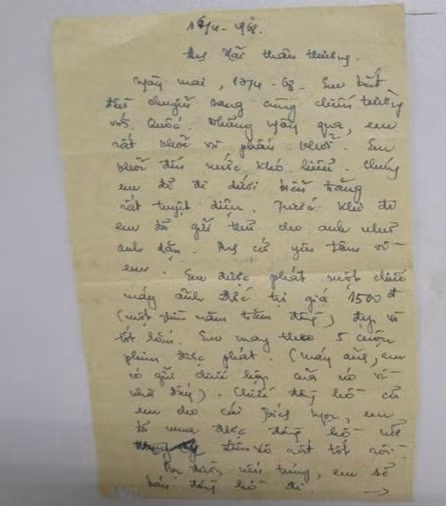 16/4-968.
Anh Hải thân thương.
Ngày mai, 17/4-68. Em bắt
đầu chuyến sang cùng chiến trường
với Quốc. Những ngày qua, em
rất khỏe và phấn khởi. Em
khỏe đến mức khó hiểu. Chúng
em đã đi dưới biển trăng
rất tuyệt diệu. Trước khi đi
em đã gửi thư cho anh như
anh dặn. Anh cứ yên tâm về
em. Em được phát một chiếc
máy ảnh Đức trị giá 1500đ
(một ngìn năm trăm đồng) đẹp và
tốt lắm. Em mang theo 5 cuộn
phim được phát. (máy ảnh, em
có gửi dưới hộp của nó về
nhà đấy). Chiếc đồng hồ cũ
em cho cái Bích Ngọc, em
đã mua được đồng hồ mới
rất tốt rồi.
Dọc đường, nếu túng, em sẽ
bán đồng hồ đi. →